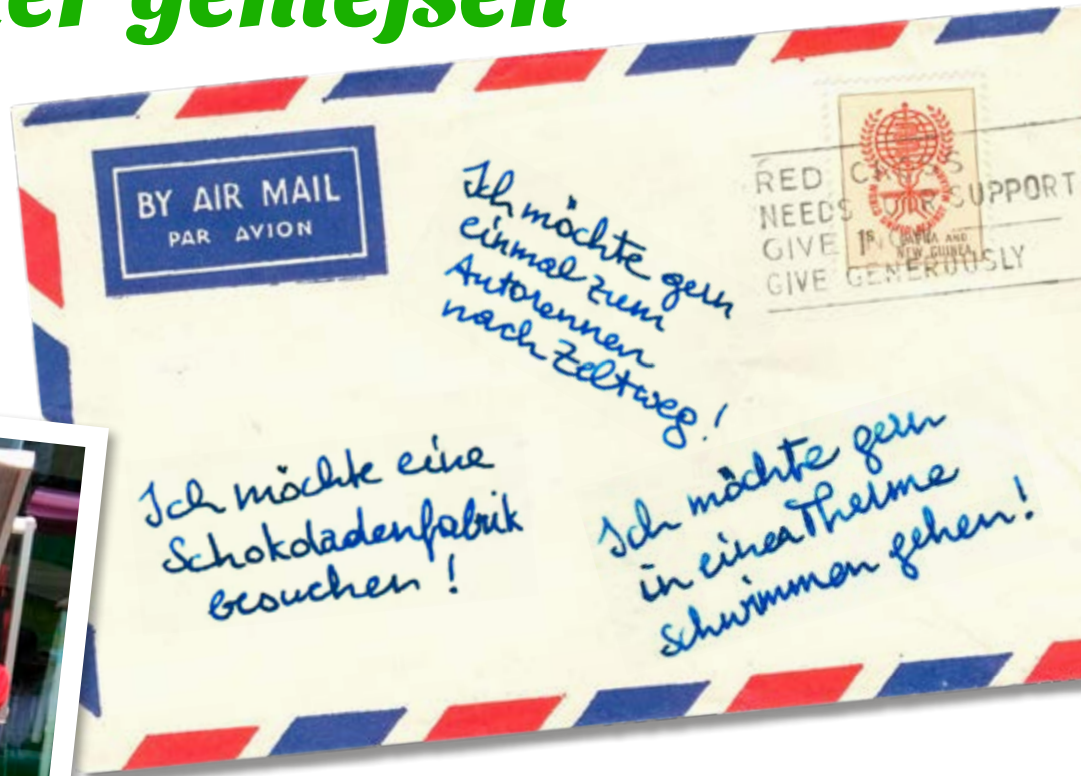 er genießen
BY AIR MAIL
PAR AVION
RED CROSS
NEEDS YOUR SUPPORT
GIVE NOW
GIVE GENEROUSLY
1s PAPUA AND
NEW GUINEA
Ich möchte gern
einmal zum
Autorennen
nach Zeltweg!
Ich möchte eine
Schokoladenfabrik
besuchen!
Ich möchte gern
in einea Therme
schwimmen gehen!